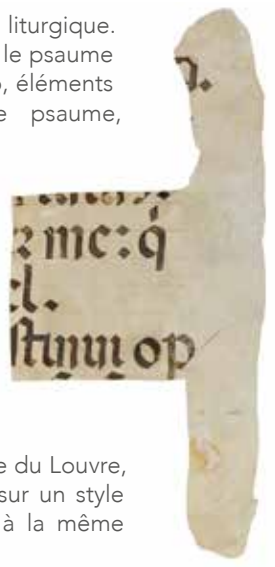 liturgique.
le psaume
o, éléments
e psaume,
r me: q
el.
stinui op
e du Louvre,
sur un style
à la même